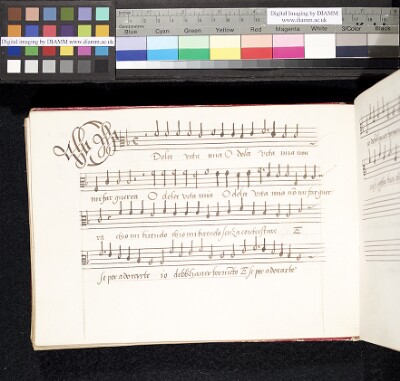 Digital Imaging by DIAMM
www.diamm.ac.uk
Digital Imaging by DIAMM www.diamm.ac.uk
Blue Cyan Green Yellow Red Magenta White 3/Color Black
Dolce vita mia O dolce vita mia non
mi far guerra O dolce vita mia O dolce vita mia no mi far guer
ra chio mi t'arrendo chio mi t'arrendo senza contrastare
se per adorarte io debbh haver tormento se per adorarte